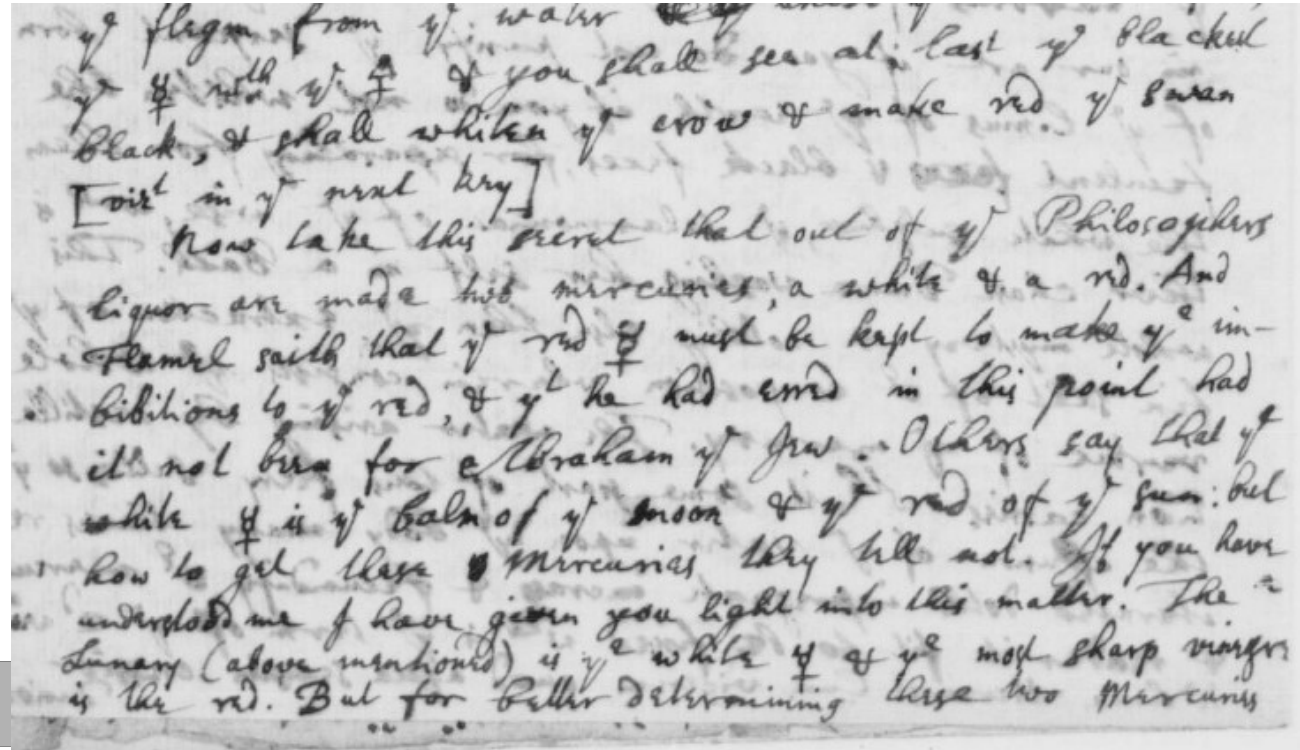 yᵉ flegm from yᵉ water
yᵉ ☿ wᵗʰ yᵉ 🜍 & you shall see at last yᵉ blacked
black, & shall whiten yᵉ crow & make red yᵉ swan
[vizᵗ in yᵉ next key]
Now take this secret that out of yᵉ Philosophers
liquor are made two mercuries, a white & a red. And
Flamel saith that yᵉ red ☿ must be kept to make yᵉ im-
bibitions to yᵉ red, & yᵗ he had erred in this point had
it not been for Abraham yᵉ Jew. Others say that yᵉ
white ☿ is yᵉ balm of yᵉ moon & yᵉ red of yᵉ sun: but
how to get these Mercuries they tell not. If you have
understood me I have given you light into this matter. The
Lunary (above mentioned) is yᵉ white ☿ & yᵉ most sharp vinegre
is the red. But for better determining these two Mercuries